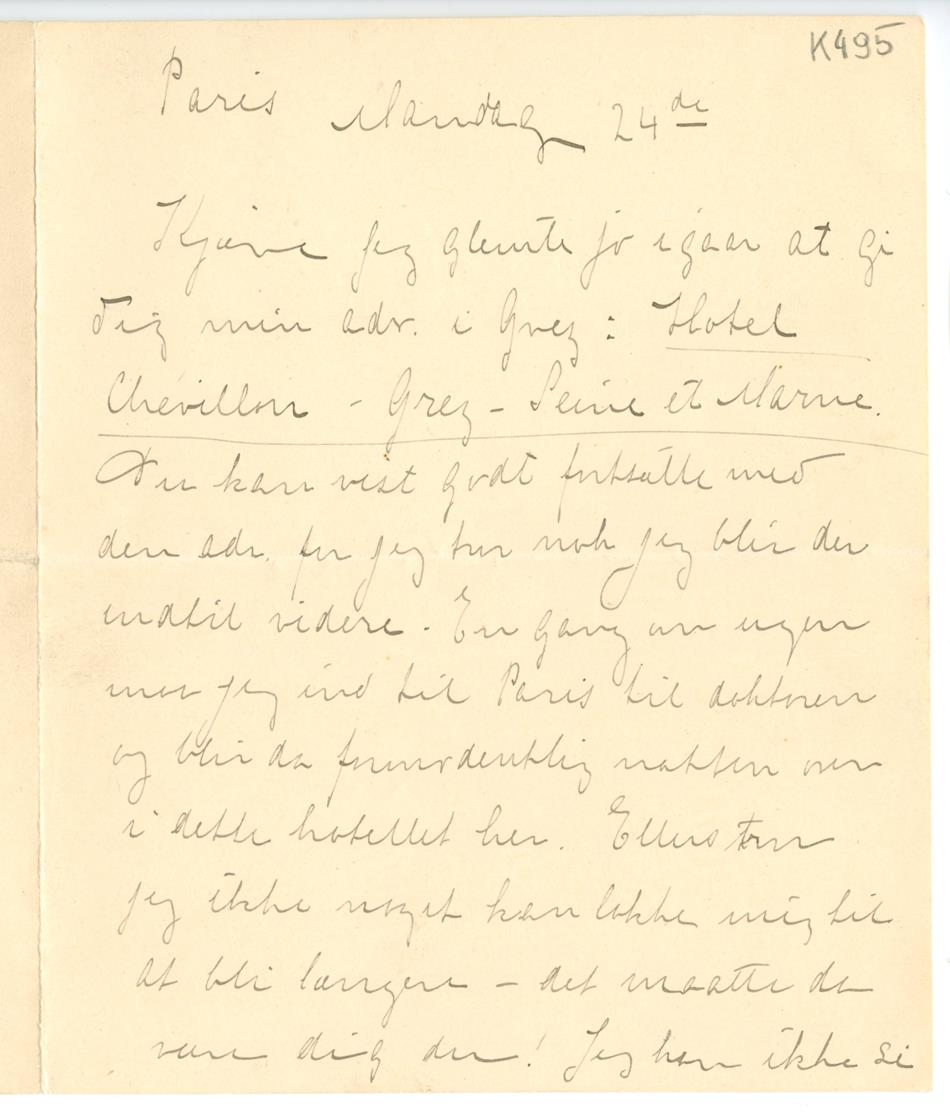 K495
Paris Mandag 24de
Kjære Jeg glemte jo igaar at gi
dig min adr. i Grez: Hotel
Chevillon - Grez - Seine et Marne.
Du kan vist godt fortsætte med
den adr. for jeg tror nok jeg blir der
indtil videre. En gang om ugen
maa jeg ind til Paris til doktoren
og blir da formodentlig natten over
i dette hotellet her. Ellers tror
jeg ikke noget kan lokke mig til
at bli længere – det maatte da
være dig der! Jeg kan ikke si